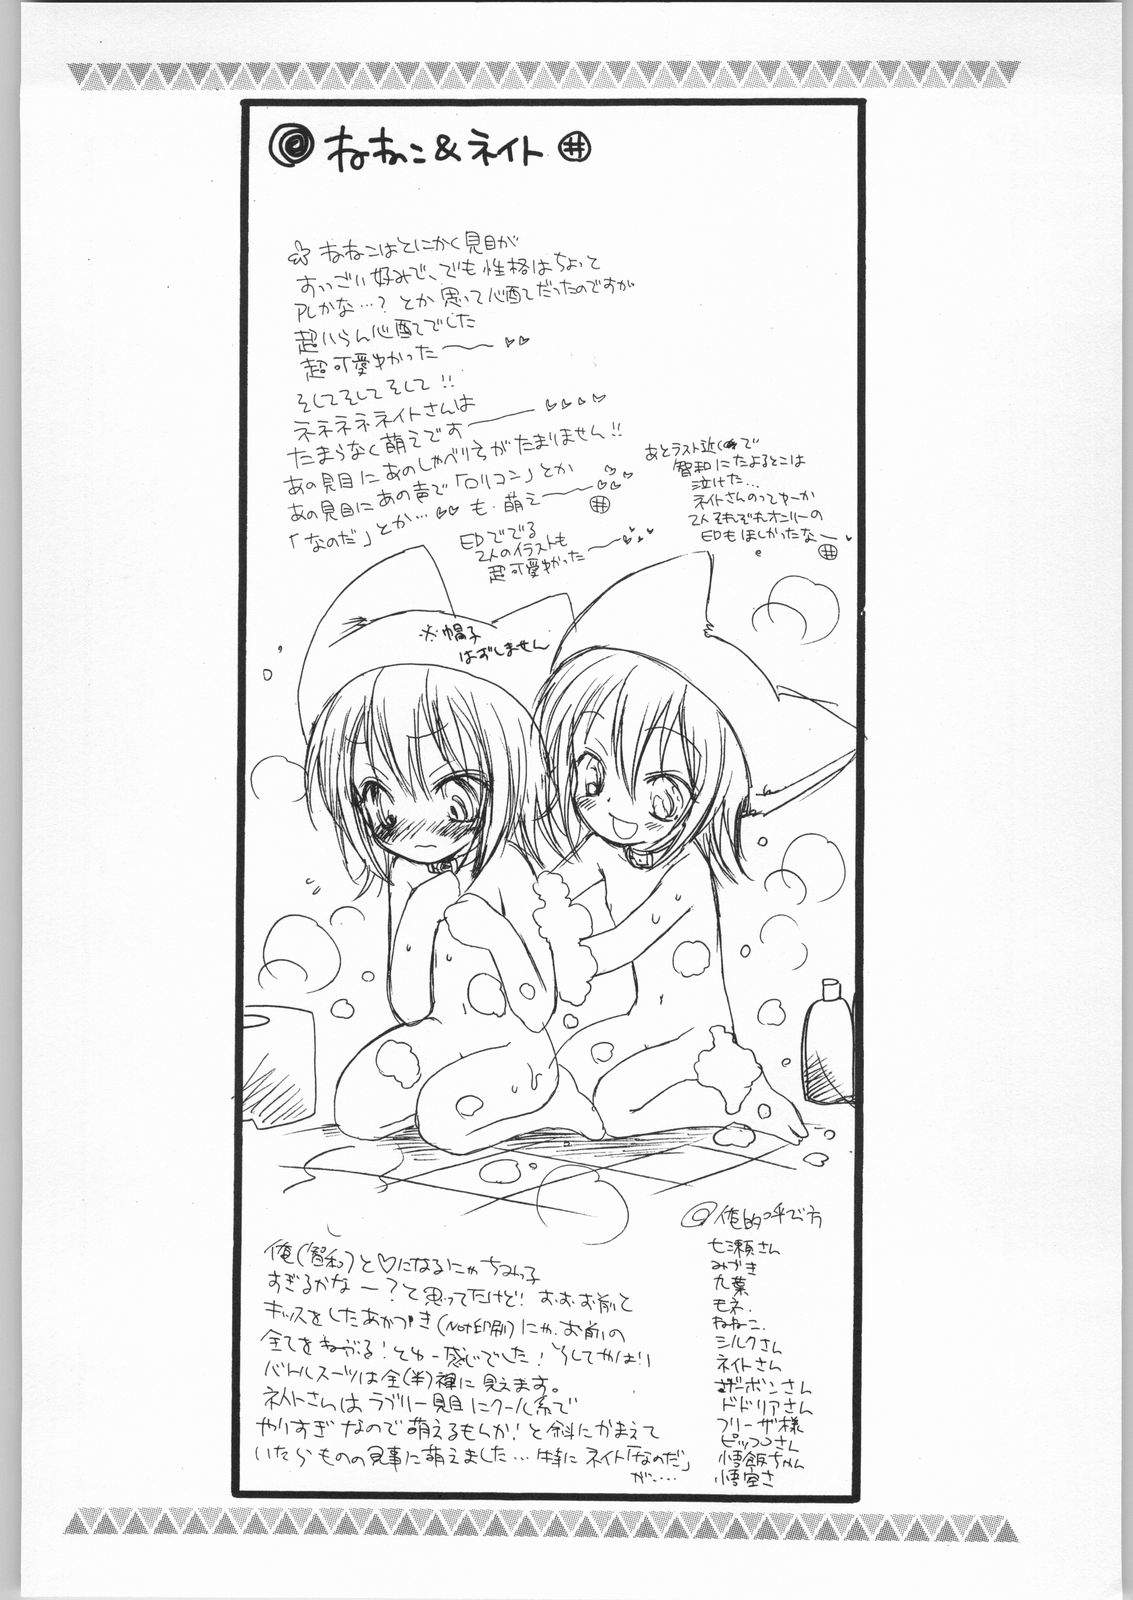 ねねこ&ネイト
ねねこはとにかく見目が
すっごい好みで、でも性格はちょって
アレかな…?とか思って心配だったのですが
超いらん心配でした
超可愛かった
そしてそしてそして!!
ネネネネネイトさんは
たまらなく萌えです
あの見目にあのしゃべり方がたまりません!!
あの見目にあの声で「ロリコン」とか
「なのだ」とか…も、萌え
EDででる
2人のイラストも
超可愛かった
あとラスト近くで
智和にたよるとこは
泣けた…
ネイトさんのってゆーか
2人それぞれオンリーの
EDもほしかったなー
※帽子
はずしません
俺的呼び方
七瀬さん
みづき
九葉
モネ.
ねねこ.
シルクさん
ネイトさん
ザーボンさん
ドドリアさん
フリーザ様
ピッコロさん
悟飯ちゃん
悟空さ
俺(智和)と♡になるにゃちみっ子
すぎるかなー?て思ってたけど!お、お、お前て
キッスをしたあかつき(Not印刷)にゃ、お前の
全てをねぶる!てゆー感じでした!そしてやはり
バトルスーツは全(半)裸に見えます。
ネイトさんはラブリー見目にクール系で
やりすぎなので萌えるもんか!と斜にかまえて
いたらものの見事に萌えました…特にネイト「なのだ」
が、…